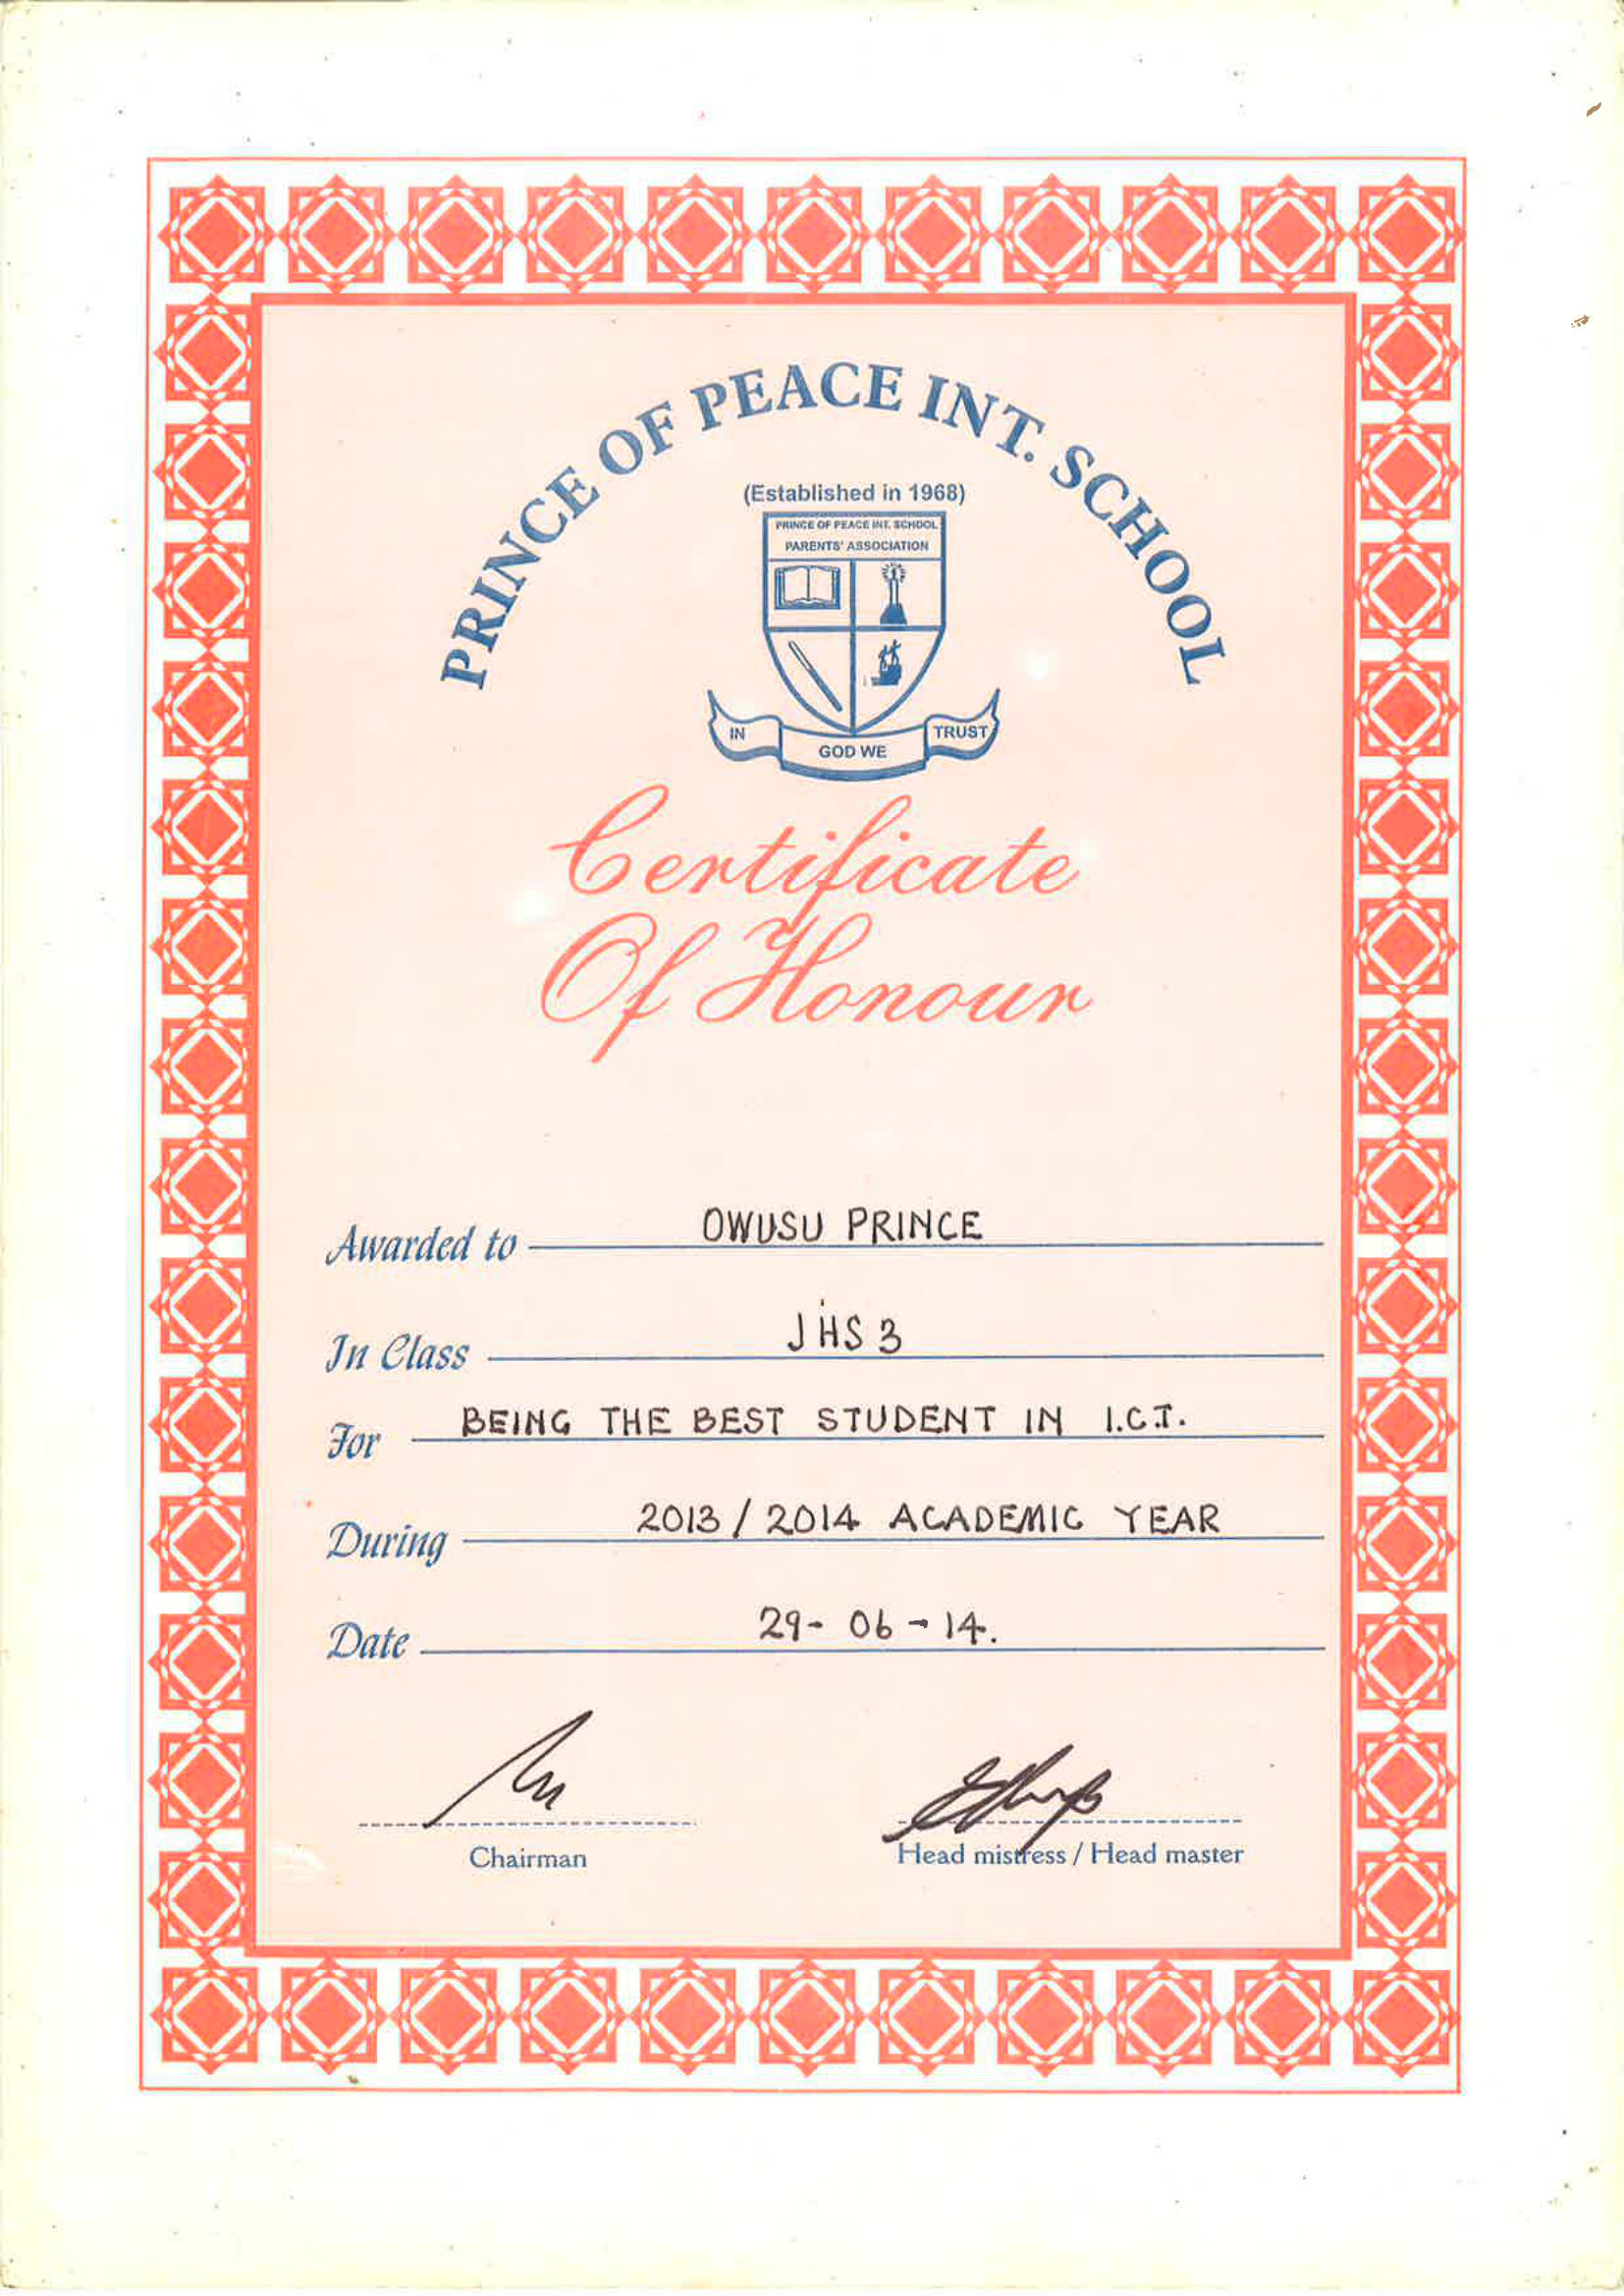 PRINCE OF PEACE INT. SCHOOL
(Established in 1968)
PRINCE OF PEACE INT. SCHOOL
PARENTS' ASSOCIATION
IN GOD WE TRUST
Certificate
Of Honour
Awarded to OWUSU PRINCE
In Class JHS 3
For BEING THE BEST STUDENT IN I.C.T.
During 2013 / 2014 ACADEMIC YEAR
Date 29- 06 - 14.
Chairman Head mistress / Head master